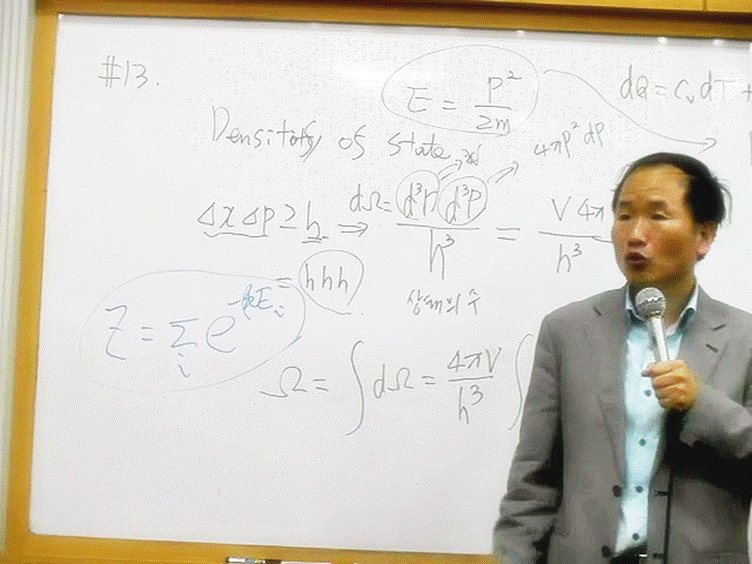 #13.
E = p²/2m
dQ = CvdT +
Density of state
4πp²dp
Δx Δp ≥ h ⇒ dΩ = d³r d³p / h³ = V 4π / h³
= h h h
상태의 수
Z = Σᵢ e^(-βEᵢ)
Ω = ∫ dΩ = 4πV / h³ ∫